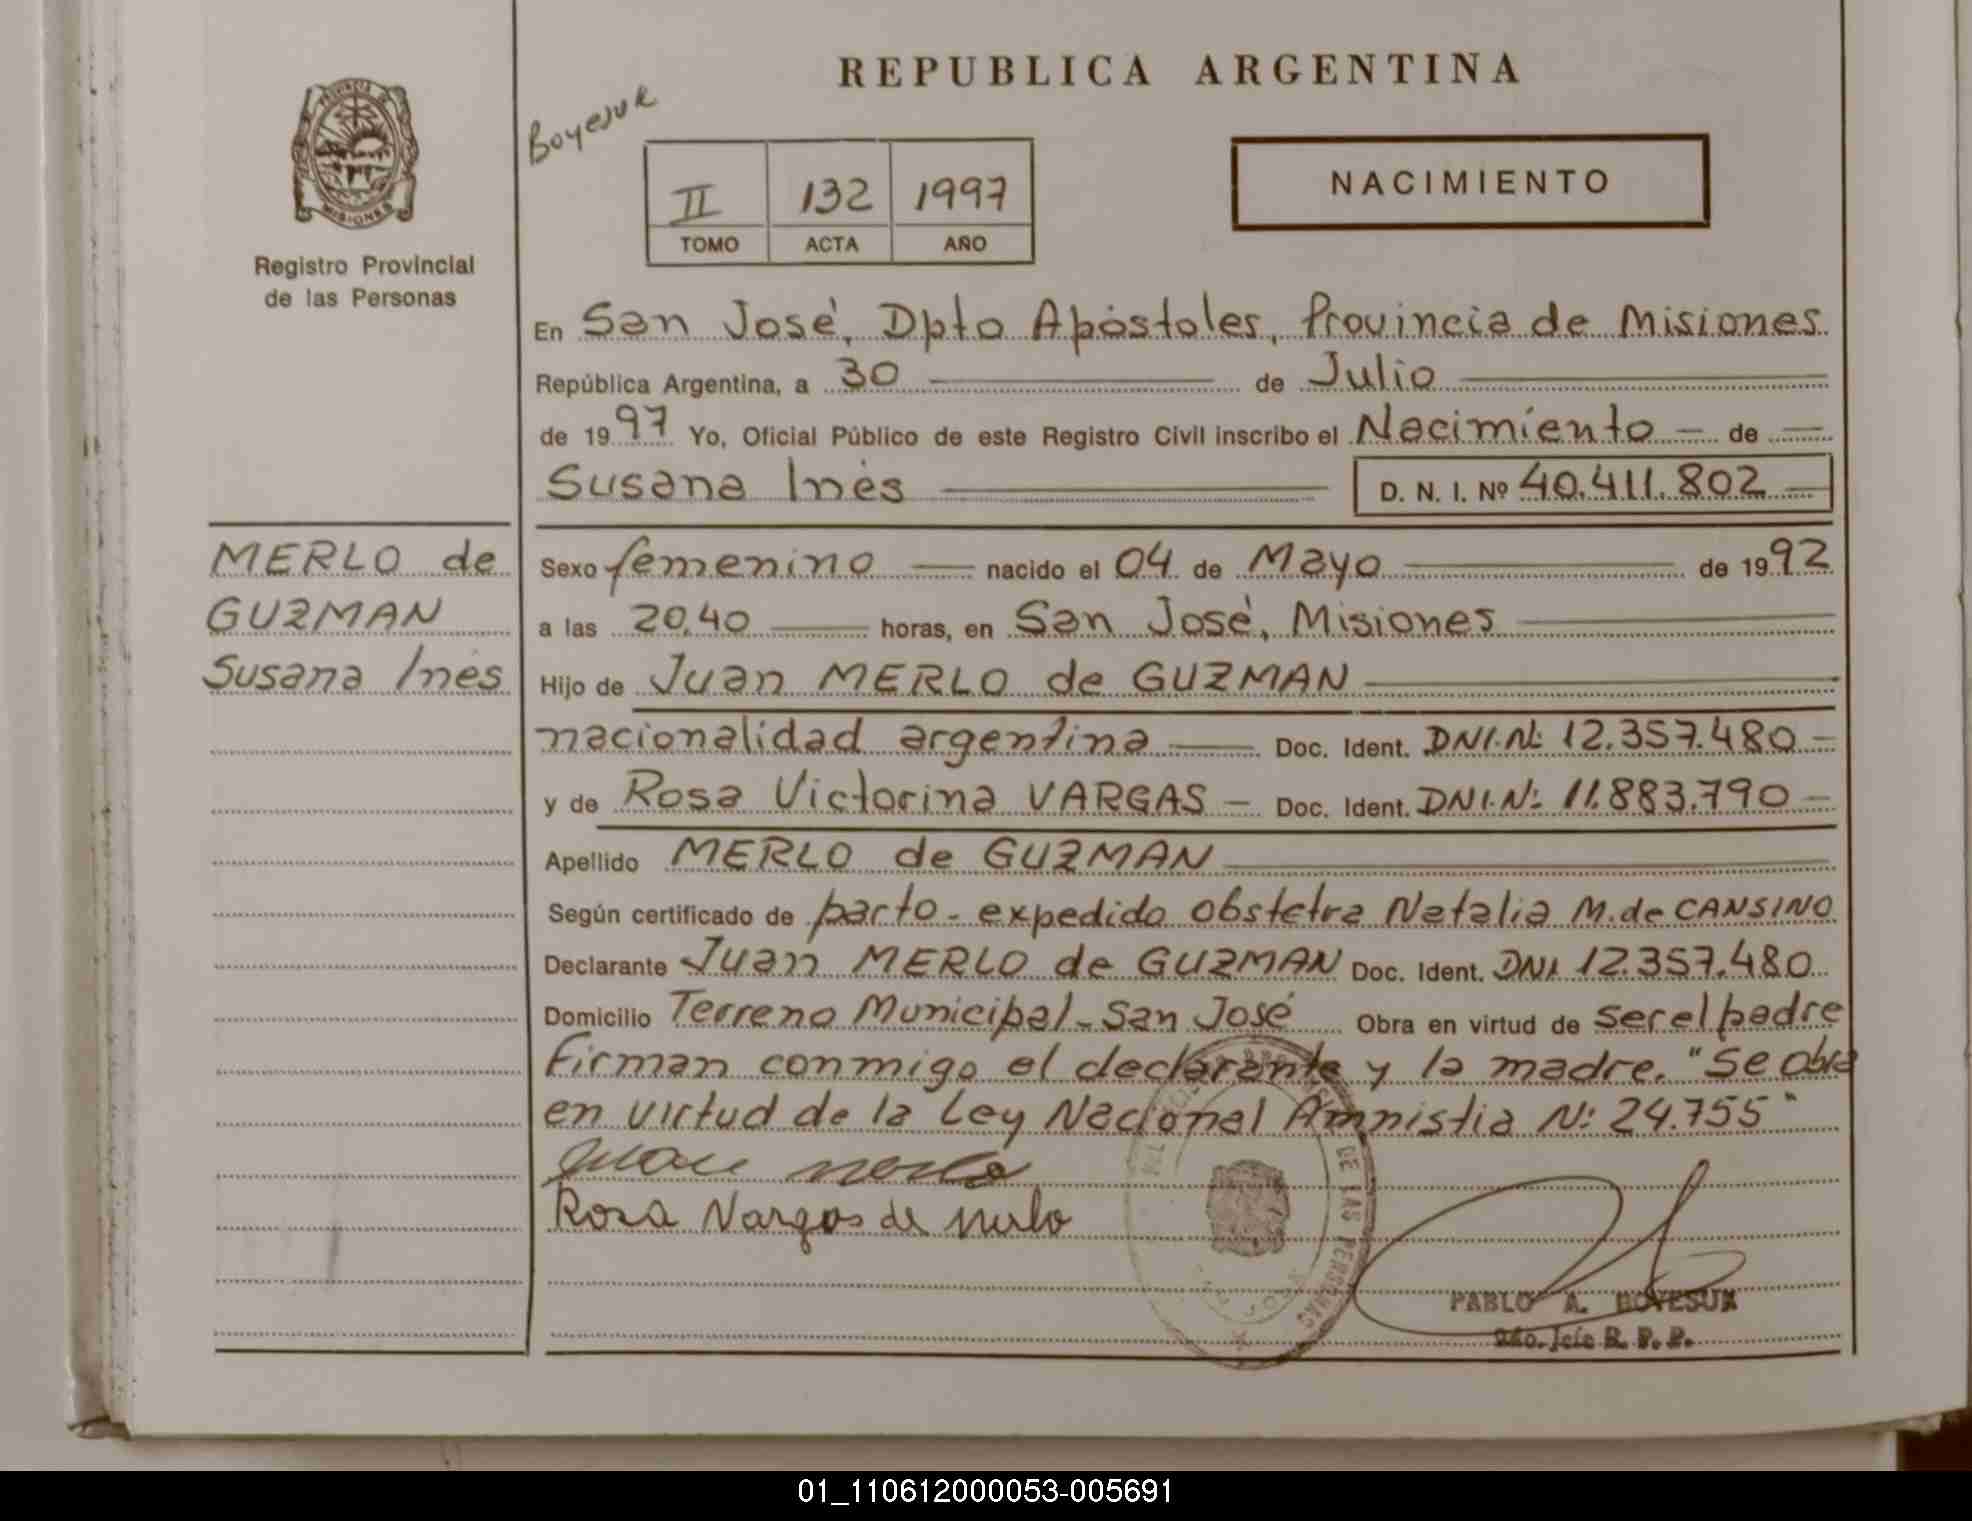 REPUBLICA ARGENTINA
Boyesuk
PROVINCIA DE
MISIONES
Registro Provincial
de las Personas
II 132 1997
TOMO ACTA AÑO
NACIMIENTO
En San José, Dpto Apóstoles, Provincia de Misiones
República Argentina, a 30 de Julio
de 1997 Yo, Oficial Público de este Registro Civil inscribo el Nacimiento de
Susana Inés D. N. I. Nº 40.411.802
MERLO de
GUZMAN
Susana Inés
Sexo femenino nacido el 04 de Mayo de 1992
a las 20,40 horas, en San José, Misiones
Hijo de Juan MERLO de GUZMAN
nacionalidad argentina Doc. Ident. DNI.Nº 12.357.480
y de Rosa Victorina VARGAS Doc. Ident. DNI.Nº 11.883.790
Apellido MERLO de GUZMAN
Según certificado de parto - expedido obstetra Natalia M. de CANSINO
Declarante Juan MERLO de GUZMAN Doc. Ident. DNI 12.357.480
Domicilio Terreno Municipal - San José Obra en virtud de ser el padre
Firman conmigo el declarante y la madre. "Se obra
en virtud de la Ley Nacional Amnistia Nº 24.755"
Juan Merlo
Rosa Vargas de Merlo
DE LAS PERSONAS
PABLO A. BOYESUK
2do. Jefe R. P. P.
01_110612000053-005691